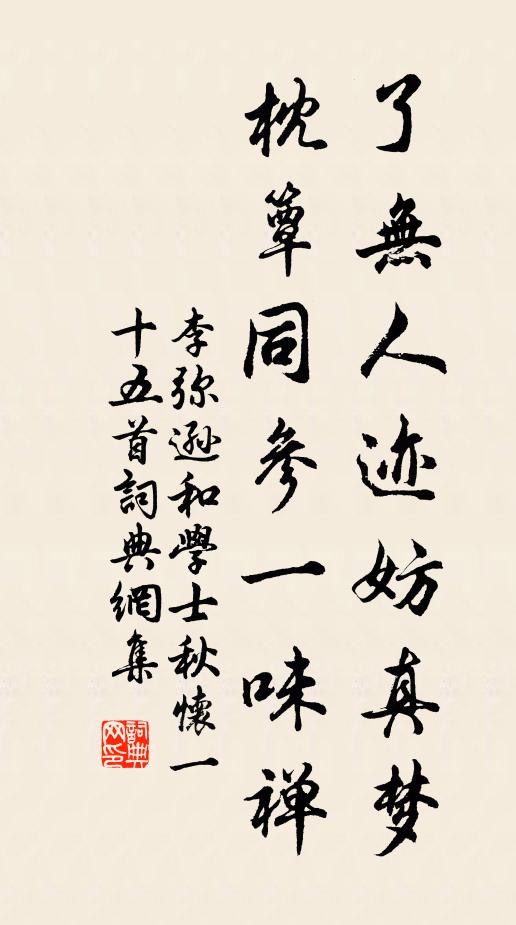 了無人迹妨真梦
枕簟同參一味禅
李弥遜和學士秋懷一
十五首詞典網集
詞典网印